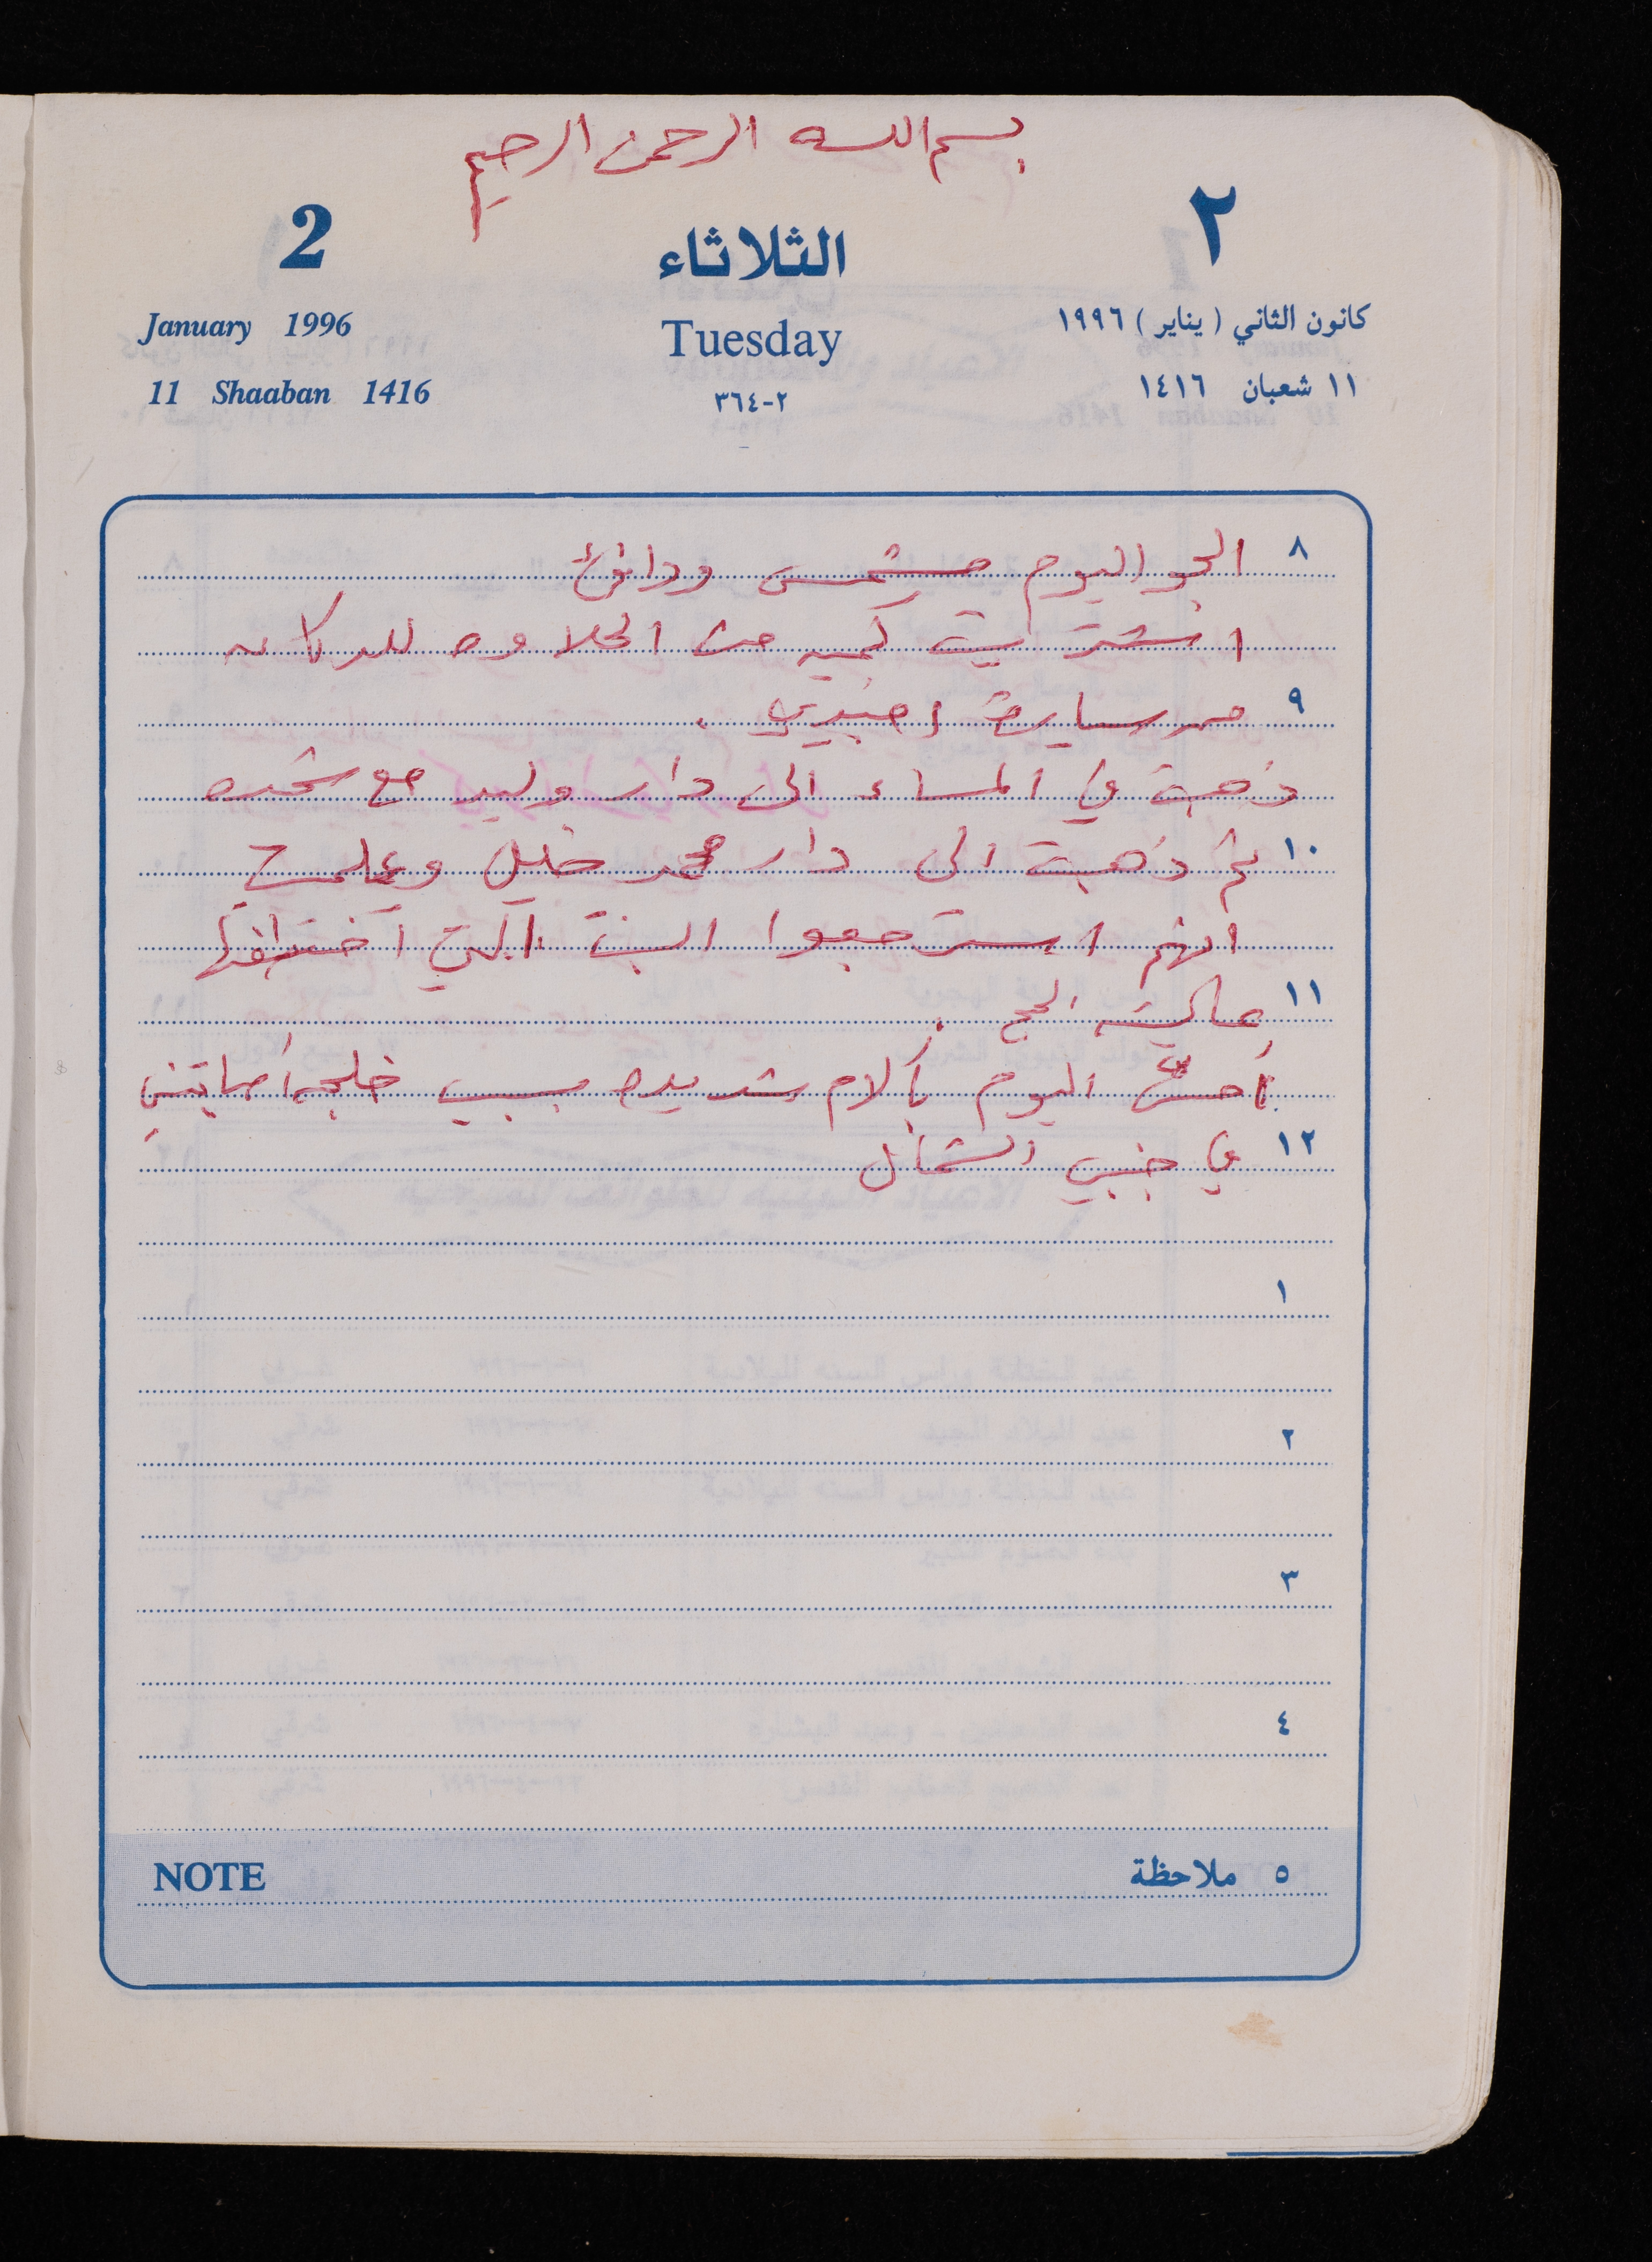 بسم الله الرحمن الرحيم
2 الثلاثاء ٢
January 1996 Tuesday كانون الثاني ( يناير ) ١٩٩٦
11 Shaaban 1416 ٣٦٤-٢ ١١ شعبان ١٤١٦
٨ الجو اليوم مشمس ودافئ
اشتريت كميه من الحلاوه للدكانه
٩ من سيارة
ذهبة في المساء الى دار وليد مع
١٠ ثم ذهبة الى دار محمد خليل وعلمت
انهم استرجعوا البنت التي اختطفها
١١ الحج .
أحسّ اليوم بآلام شديده بسبب خلجه أصابتني
١٢ في جنبي الشمال
١
٢
٣
٤
NOTE ٥ ملاحظة